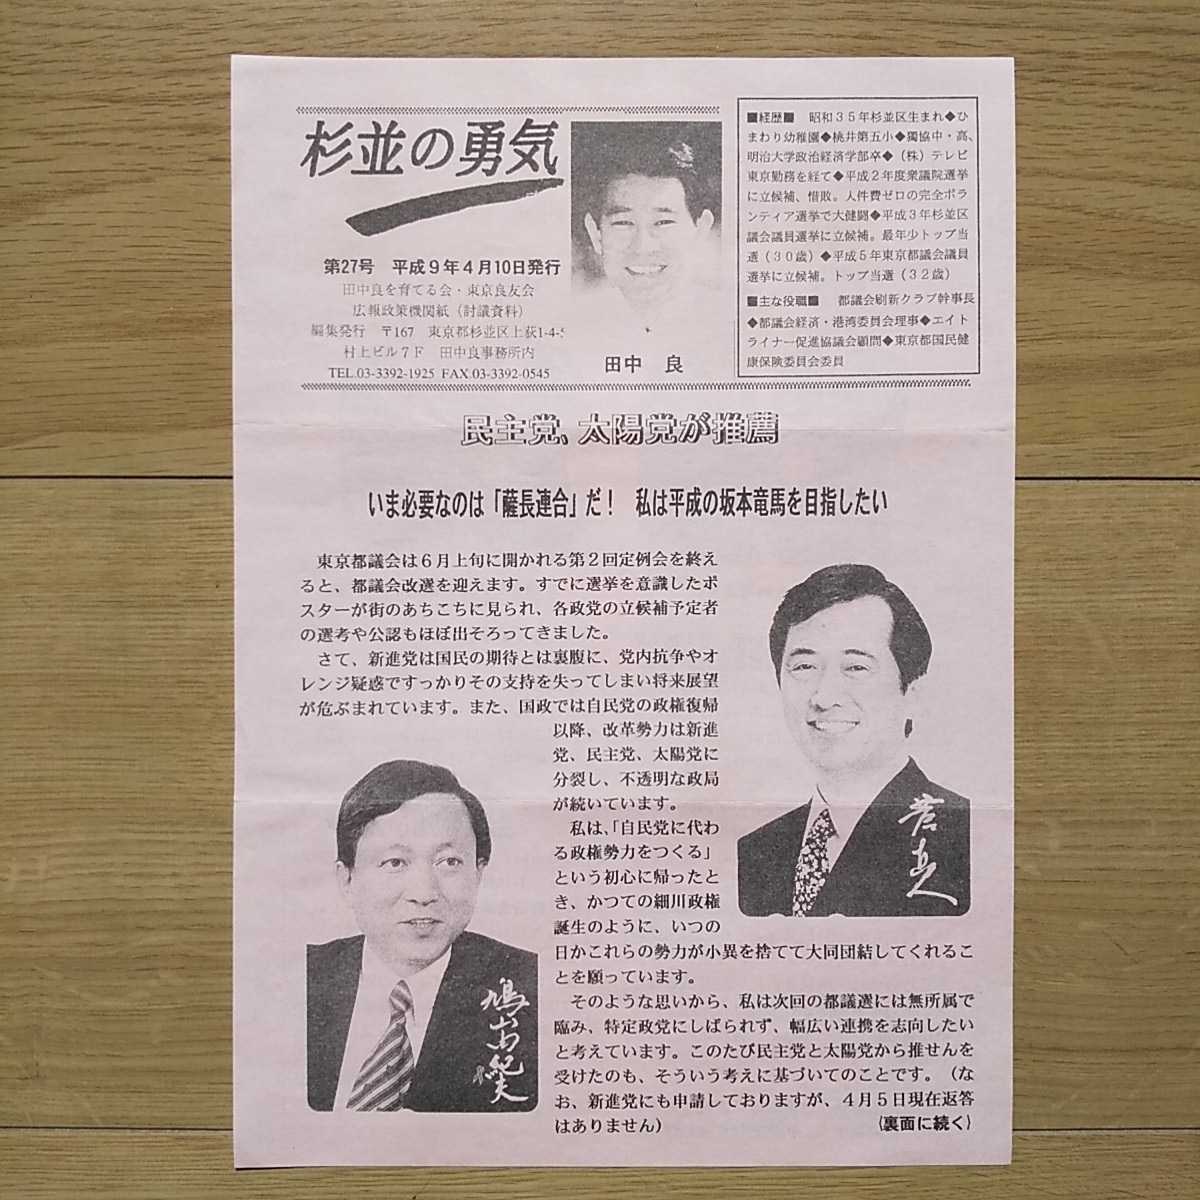 杉並の勇気
第27号　平成9年4月10日発行
田中良を育てる会・東京良友会
広報政策機関紙（討議資料）
編集発行　〒167　東京都杉並区上荻1-4-5
村上ビル7F　田中良事務所内
TEL.03-3392-1925 FAX.03-3392-0545
田中　良
■経歴■　昭和35年杉並区生まれ◆ひ
まわり幼稚園◆桃井第五小◆獨協中・高、
明治大学政治経済学部卒◆（株）テレビ
東京勤務を経て◆平成2年度衆議院選挙
に立候補、惜敗。人件費ゼロの完全ボラ
ンティア選挙で大健闘◆平成3年杉並区
議会議員選挙に立候補。最年少トップ当
選（30歳）◆平成5年東京都議会議員
選挙に立候補。トップ当選（32歳）
■主な役職■　都議会刷新クラブ幹事長
◆都議会経済・港湾委員会理事◆エイト
ライナー促進協議会顧問◆東京都国民健
康保険委員会委員
民主党、太陽党が推薦
いま必要なのは「薩長連合」だ！　私は平成の坂本竜馬を目指したい
東京都議会は6月上旬に開かれる第2回定例会を終え
ると、都議会改選を迎えます。すでに選挙を意識したポ
スターが街のあちこちに見られ、各政党の立候補予定者
の選考や公認もほぼ出そろってきました。
さて、新進党は国民の期待とは裏腹に、党内抗争やオ
レンジ疑惑ですっかりその支持を失ってしまい将来展望
が危ぶまれています。また、国政では自民党の政権復帰
以降、改革勢力は新進
党、民主党、太陽党に
分裂し、不透明な政局
が続いています。
私は、「自民党に代わ
る政権勢力をつくる」
という初心に帰ったと
き、かつての細川政権
誕生のように、いつの
日かこれらの勢力が小異を捨てて大同団結してくれるこ
とを願っています。
そのような思いから、私は次回の都議選には無所属で
臨み、特定政党にしばられず、幅広い連携を志向したい
と考えています。このたび民主党と太陽党から推せんを
受けたのも、そういう考えに基づいてのことです。（な
お、新進党にも申請しておりますが、4月5日現在返答
はありません）
（裏面に続く）
菅直人
鳩山由紀夫